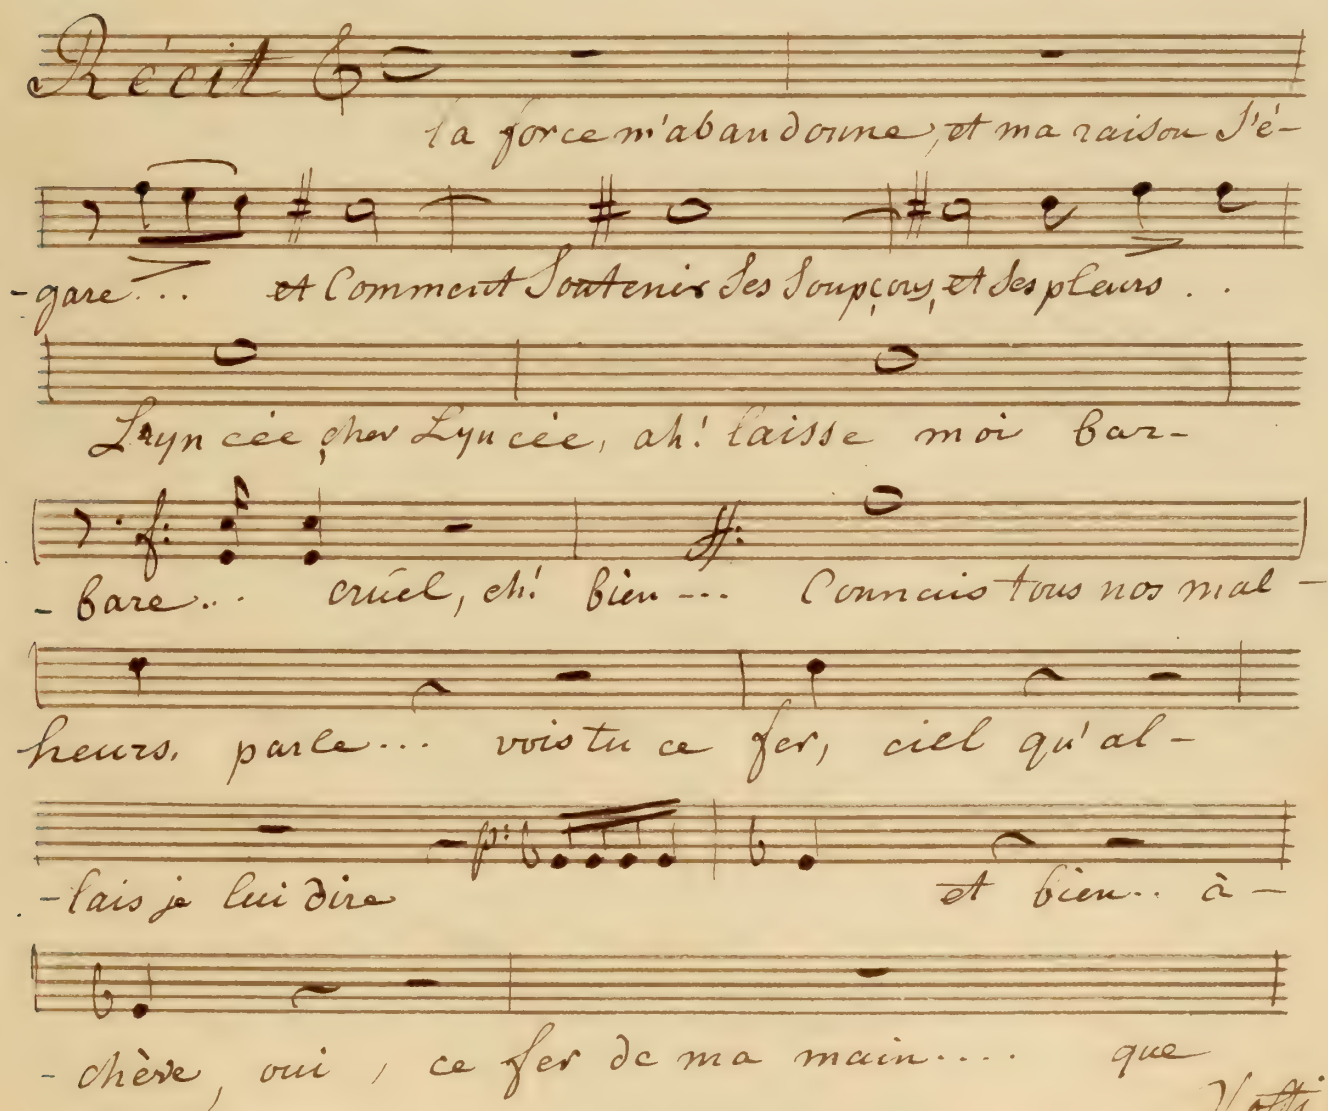 Récit
la force m'abandonne, et ma raison s'é-
-gare... et Comment Soutenir Ses Soupçons, et Ses pleurs . .
Lyncée cher Lyncée, ah! laisse moi bar-
-bare... cruel, eh! bien --- Connais tous nos mal-
heurs, parle... vois tu ce fer, ciel qu'al-
-lais je lui dire et bien.. à-
-chève, oui, ce fer de ma main.... que